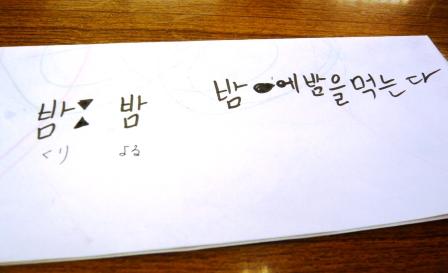 밤ː 밤 밤에 밤을 먹는다
くり よる